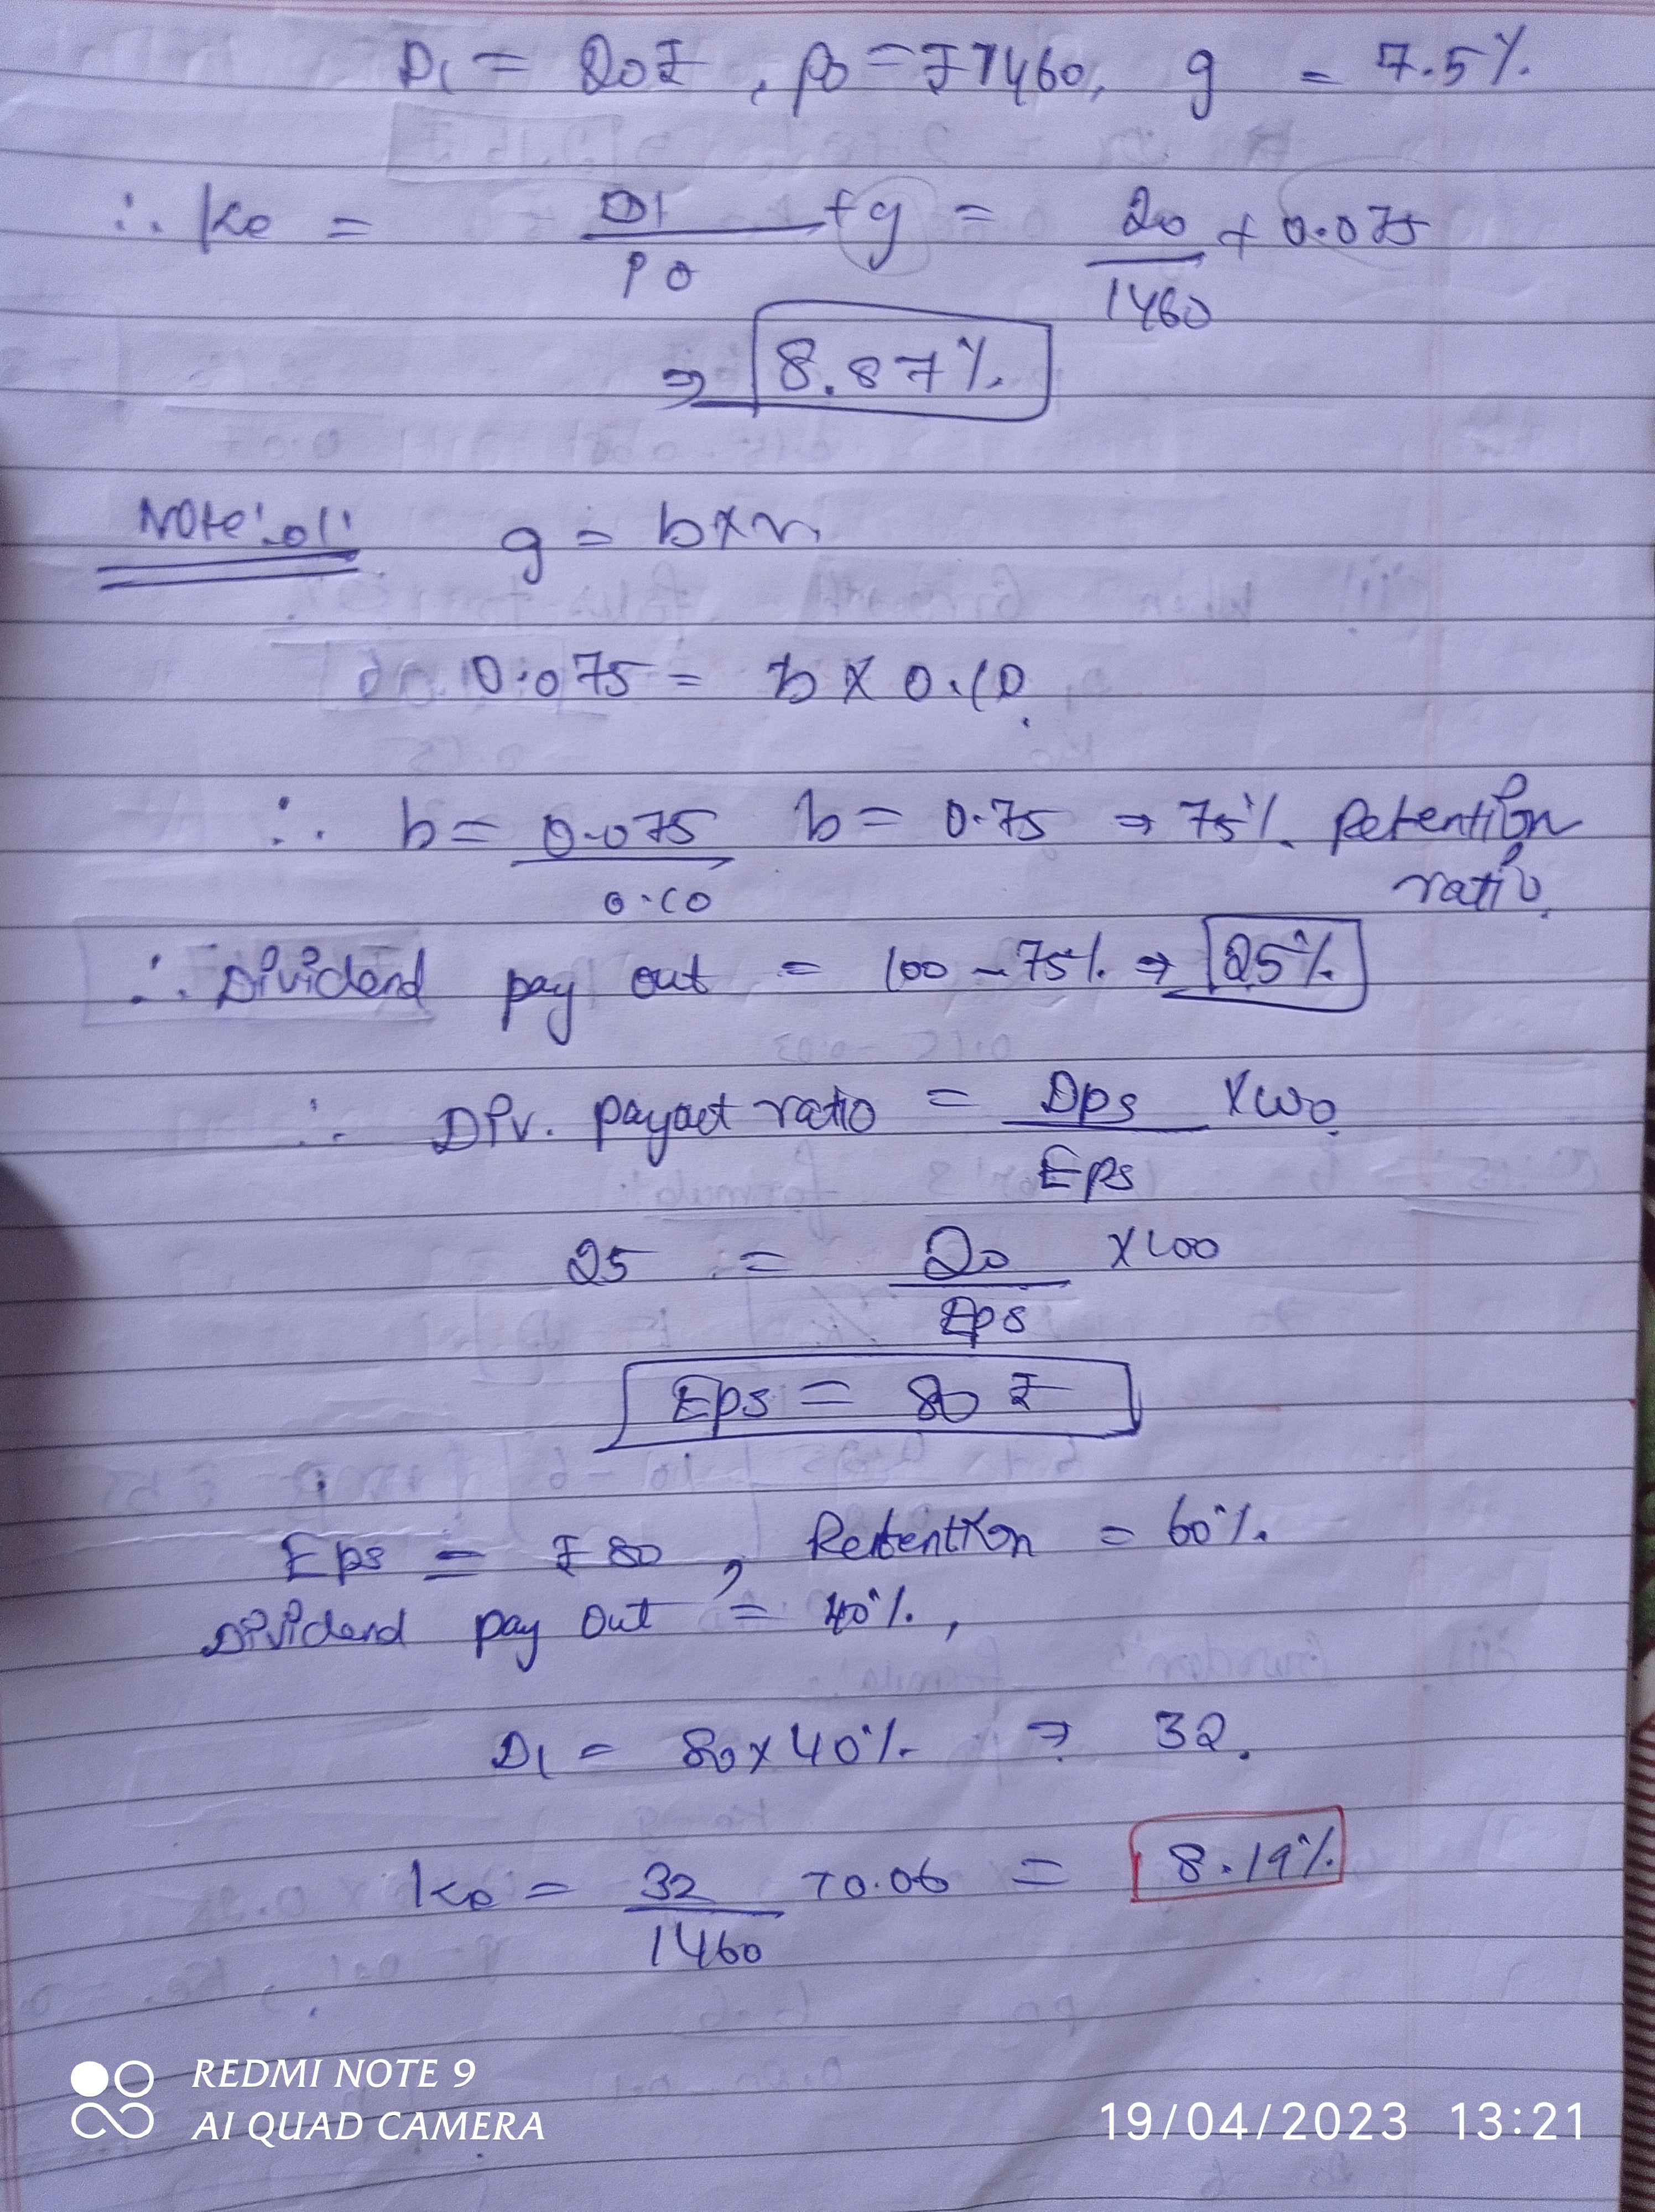 D1 = 20₹, P0 = ₹1460, g = 7.5%
∴ Ke = D1/P0 + g = 20/1460 + 0.075
⇒ 8.87%
Note: 01: g = b×r
0.075 = b × 0.10
∴ b = 0.075/0.10 b = 0.75 ⇒ 75% Retention ratio
∴ Dividend pay out = 100 - 75% ⇒ 25%
∴ Div. payout ratio = Dps/Eps ×100
25 = 20/Eps ×100
Eps = 80 ₹
Eps = ₹80, Retention = 60%
Dividend pay out = 40%,
D1 = 80×40% ⇒ 32.
Ke = 32/1460 + 0.06 = 8.19%
REDMI NOTE 9
AI QUAD CAMERA
19/04/2023 13:21